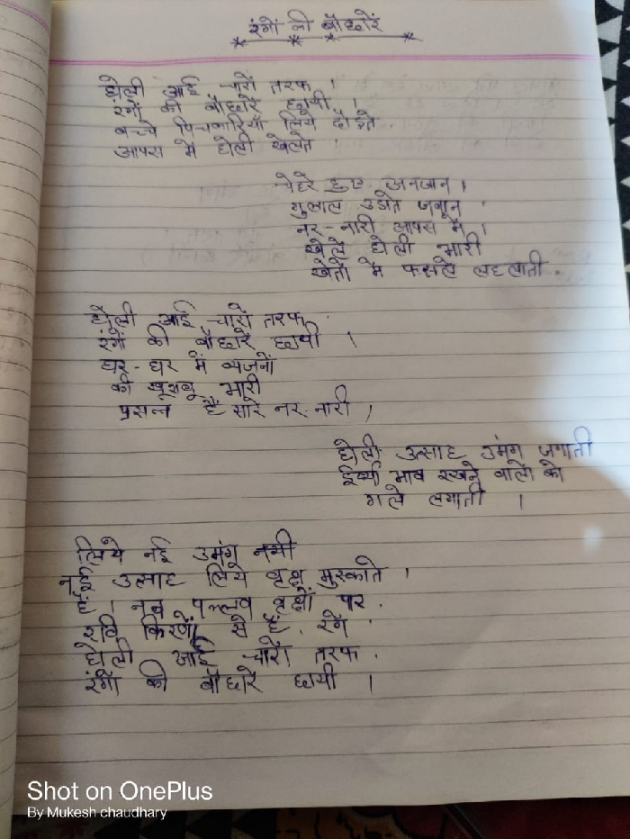 रंगों की बौछारें
होली आई चारों तरफ ।
रंगों की बौछारे छायी ।
बच्चे पिचकारियाँ लिये दौड़ते
आपस में होली खेलते ।
चेहरे हुए अनजान ।
गुलाल उडाते
नर-नारी आपस में ।
खेले होली भारी
खेतों में फसले लहलाती .
होली आई चारों तरफ
रंगों की बौछारे छायी ।
घर-घर में व्यजनों
की खुशबू भारी
प्रसन्न हैं सारे नर-नारी ।
होली उत्साह उमंग जगाती
ईर्ष्या भाव रखने वालो को
गले लगाती ।
लिये नई उमंग नयी
नई उत्साह लिये वृक्ष मुस्काते ।
है। नव पल्लव वृक्षों पर .
रवि किरणों से है . रंगे
होली आई चारों तरफ .
रंगों की बौछारे छायी ।
Shot on OnePlus
By Mukesh chaudhary